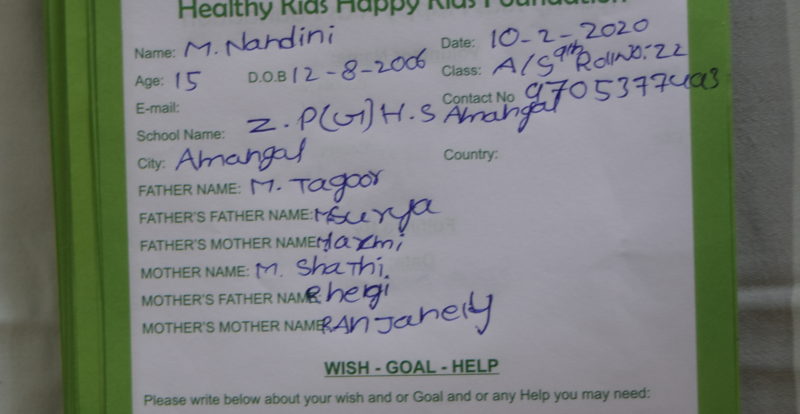 Healthy Kids Happy Kids Foundation
Name: M. Nandini Date: 10-2-2020
Age: 15 D.O.B 12-8-2006 Class: A/S 9th Roll NO: 22
E-mail: Contact No 9705377493
School Name: Z.P(G)H.S Amangal
City: Amangal Country:
FATHER NAME: M. Tagoor
FATHER'S FATHER NAME: M Surya
FATHER'S MOTHER NAME
MOTHER NAME: M. Shathi
MOTHER'S FATHER NAME
MOTHER'S MOTHER NAME: RANJanely
WISH - GOAL - HELP
Please write below about your wish and or Goal and or any Help you may need: